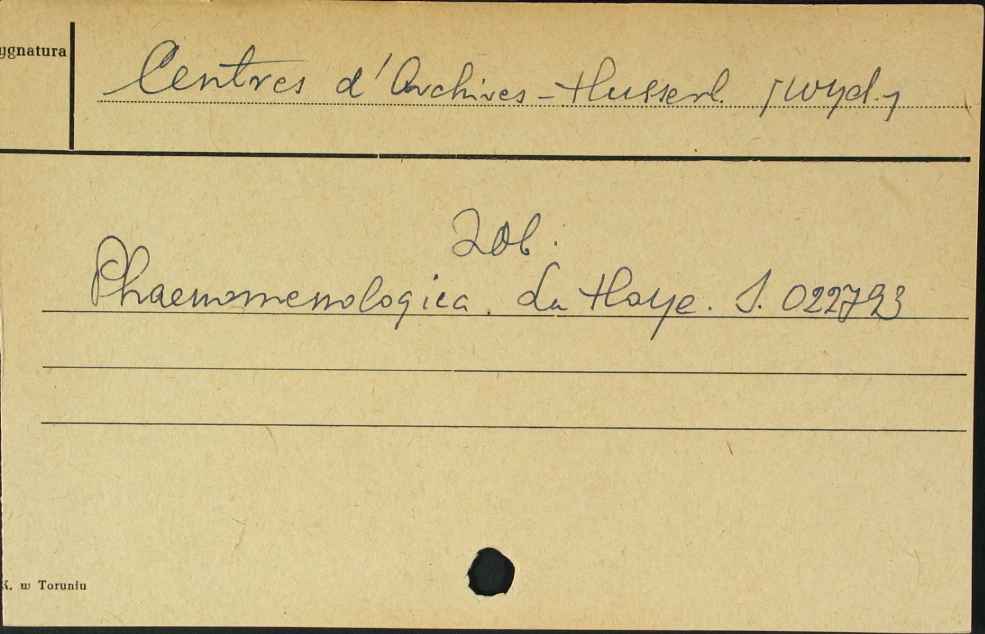 ygnatura
Centres d'Archives-Husserl. [Wyd.]
Zob.
Phaenomenologica. La Haye. S. 022793
K. w Toruniu